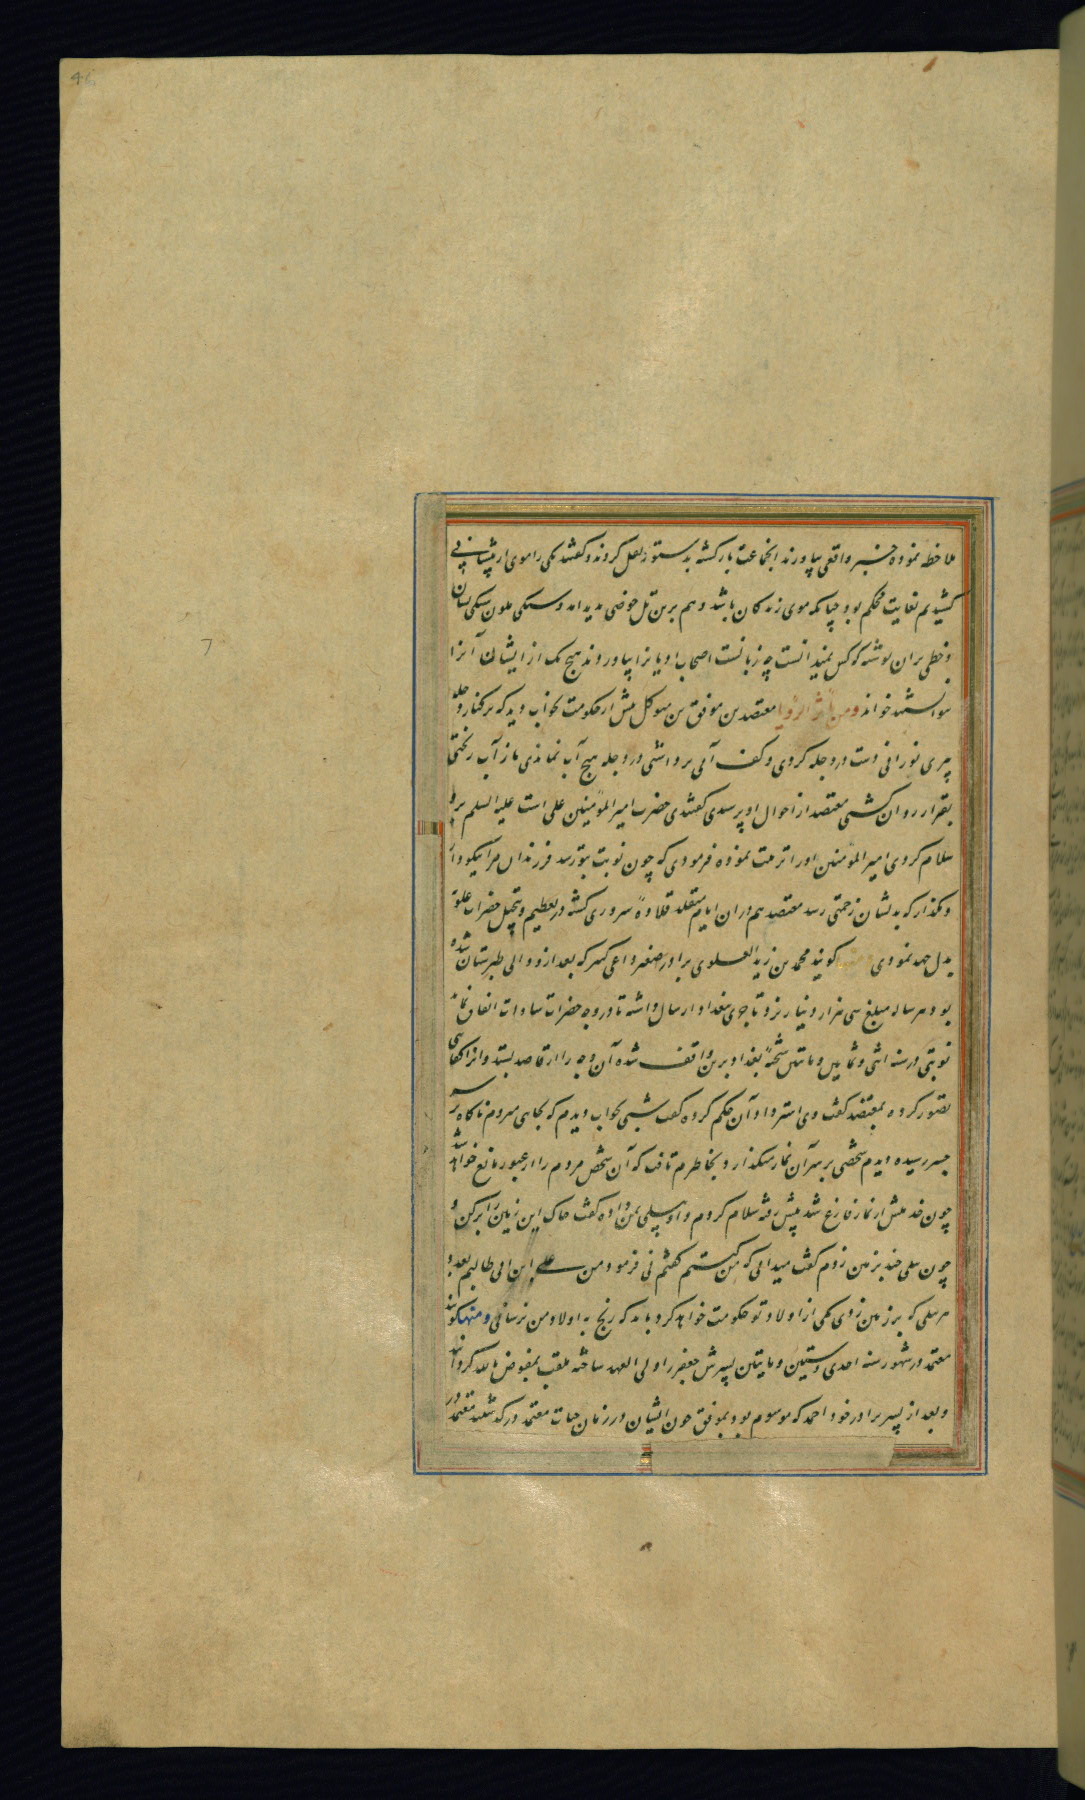 46
ملاحظه نموده خبر واقعی بیاورند انجماعت بازکشته بدستور نقل کردند و کفتند یکی را موی از پیشانی
کشیدیم بغایت محکم بود چنانکه موی زندکان باشد و هم برین تل حوضی پدید امد و سنکی ملون سنکی بسان
و خطی بران نوشته که کس نمیدانست چه زبانست اصحاب ادیانرا بیاوردند هیچ یک از ایشان آنرا
نتوانستند خواند و من نادر الرؤیا معتضد بن موفق بن متوکل پیش از حکومت بخواب دید که بر کنار دجله
پیری نورانی دست در دجله کردی و کف آبی برداشتی در دجله هیچ آب نماندی باز آب ریختی
بقرار روان کشتی معتضد از احوال او پرسیدی کفتندی حضرت امیرالمؤمنین علی است علیه السلم برو
سلام کردی امیرالمؤمنین اورا تربیت نموده فرمودی که چون نوبت بتو رسد فرزندان مرا نیکو دار
و مکذار که بدیشان زحمتی رسد معتضد هم در ان ایام متقلد قلاوهٔ سروری کشته در تعظیم و تبجیل حضرات علویه
بذل جهد نمودی کویند محمد بن زید العلوی برادر صغیر داعی کبیر که بعد از و والی طبرستان شده
بود هر ساله مبلغ سی هزار دینار نزد تاجری ببغداد ارسال داشته تا در وجه حضرات سادات انفاق نماید
نوبتی در سنه اثنی و ثمانین و مائتین شحنهٔ بغداد برین واقف شده آن وجه را از قاصد بستد و انرا کفایتی
تصور کرده بمعتضد کفت وی استرداد آن حکم کرده کفت شبی بخواب دیدم که بجای میروم ناکاه بر سر
جسر رسیده دیدم شخصی بر سر آن نماز میکذارد و بخاطرم تافت که آن شخص مردم را از عبور مانع خواهد شد
چون خدمتش از نماز فارغ شد پیش رفته سلام کردم و او بیلی بمن داده کفت خاک این زمین را برکن و
چون بیلی چند بر زمین زدم کفت میدانی که من کیستم کفتم نی فرمود من علی ابن ابی طالبم بعدد
هر بیلی که بر زمین زدی یکی از اولاد تو حکومت خواهد کرد باید که رنج به اولاد من نرسانی و منها کویند
معتمد در شهور سنه احدی و ستین و مایتین پسرش جعفر را ولی العهد ساخته ملقب بمفوض بالله کردانید
و بعد از پسر برادر خود احمد که موسوم بود بموفق چون ایشان در زمان حیات معتمد درکذشتند معتمد در